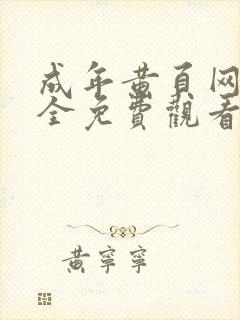 成年黄頁网
全免費觀看
黃寧寧